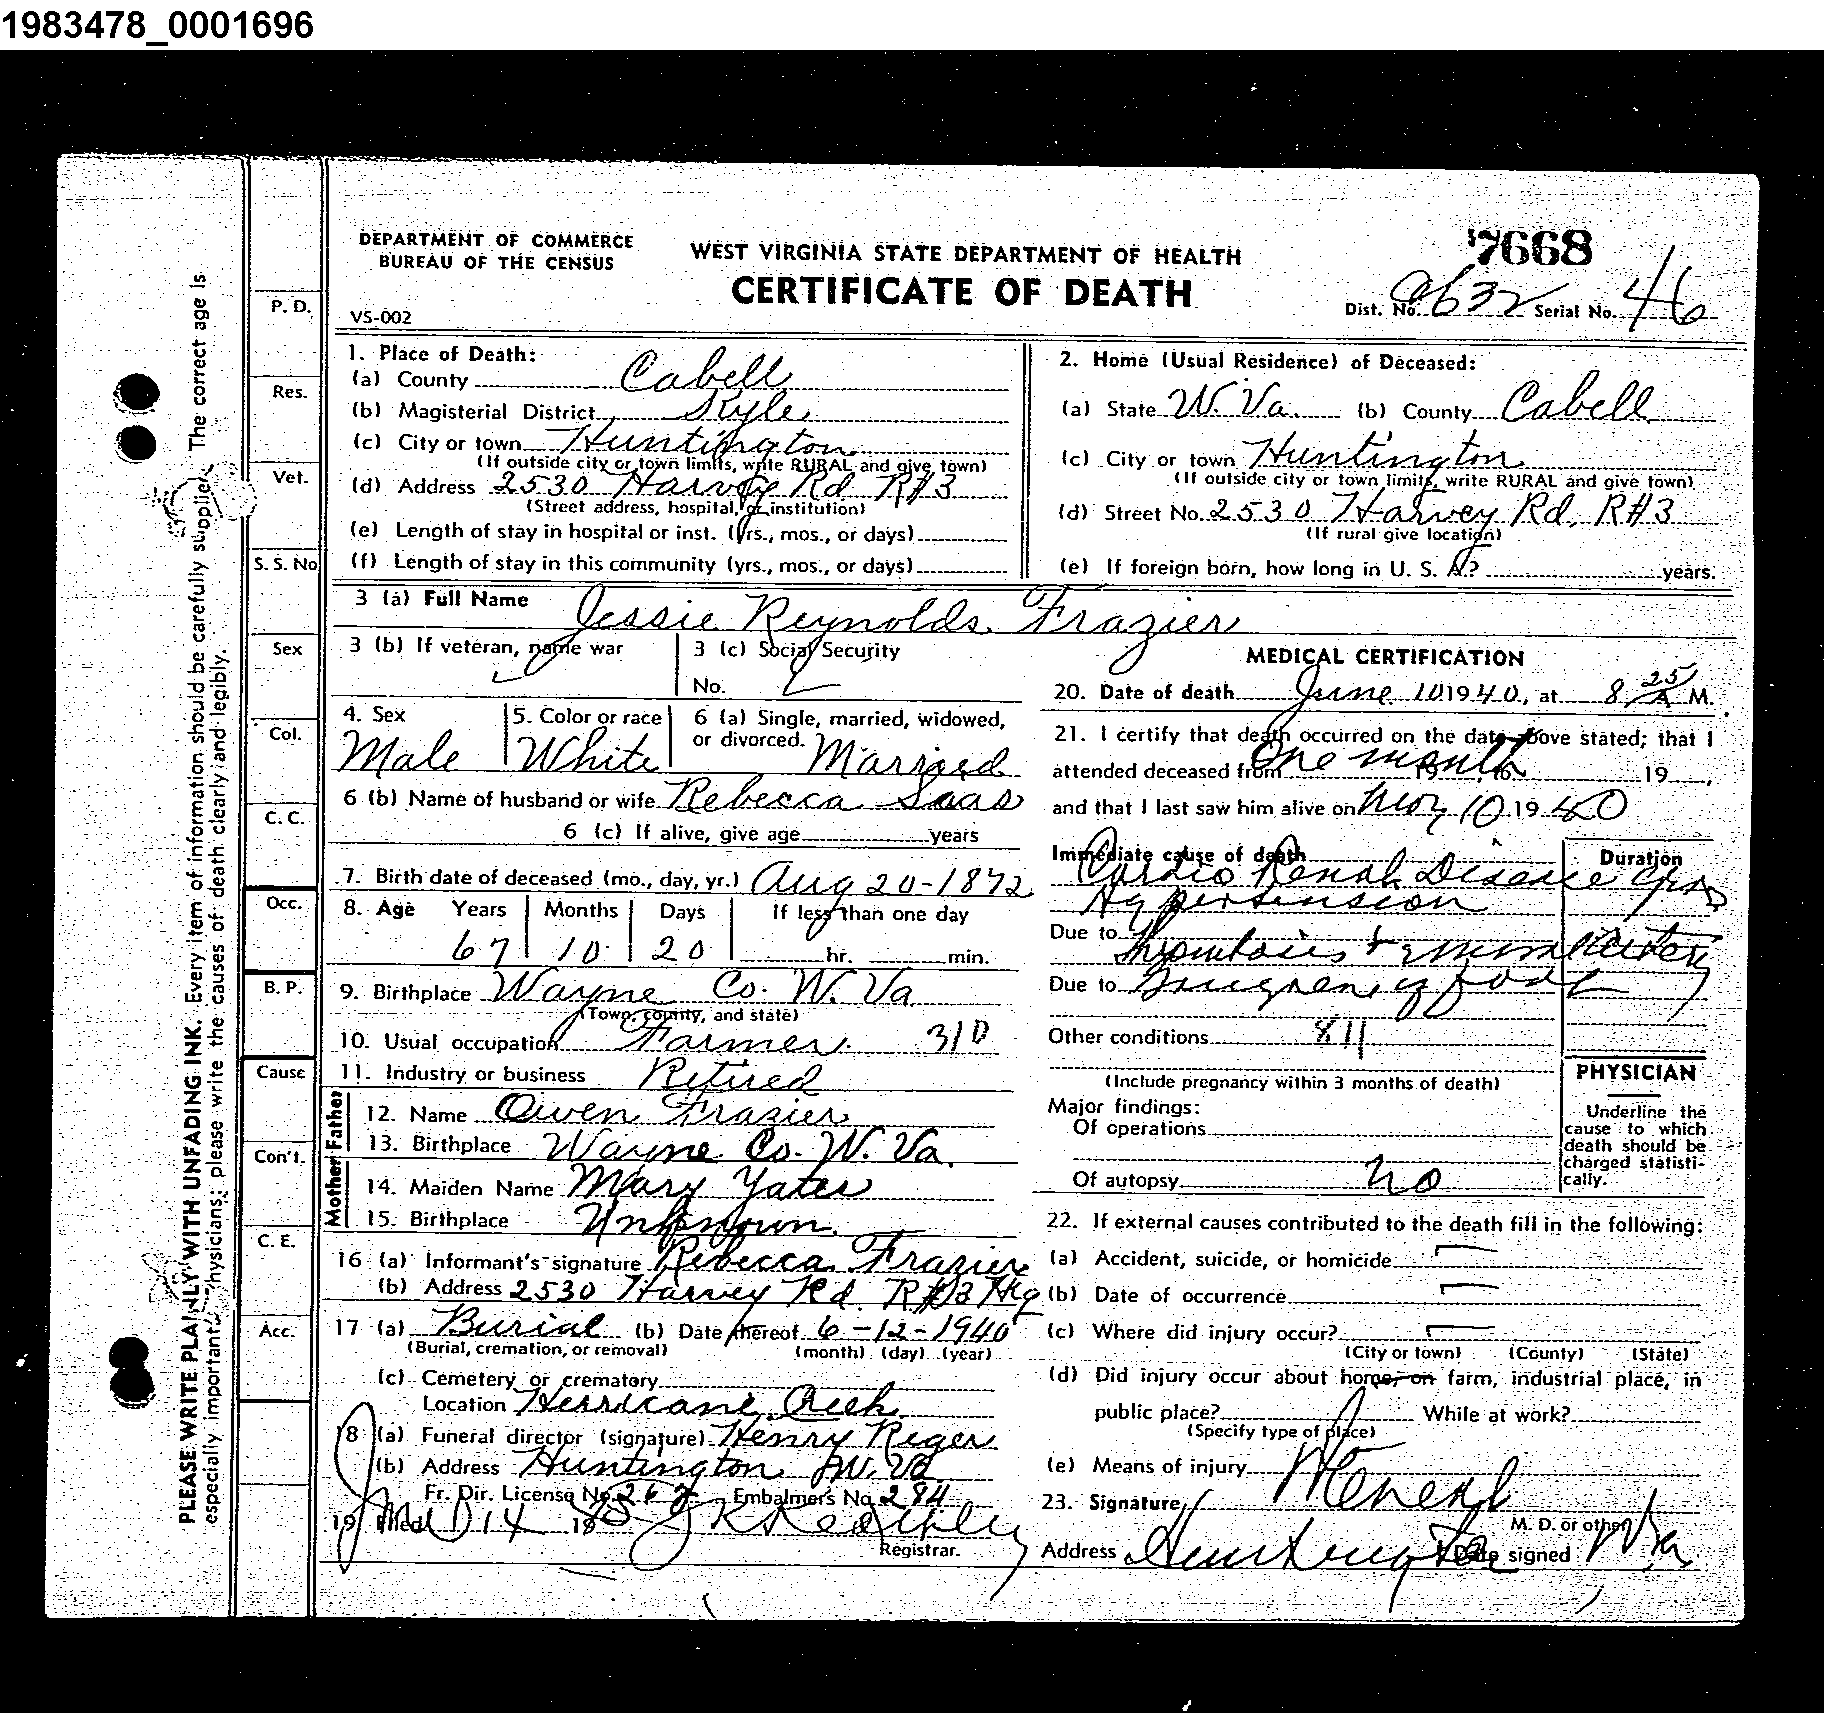 1983478_0001696
DEPARTMENT OF COMMERCE
BUREAU OF THE CENSUS
WEST VIRGINIA STATE DEPARTMENT OF HEALTH
CERTIFICATE OF DEATH
7668
VS-002
Dist. No. 0632 Serial No. 46
1. Place of Death:
(a) County Cabell
(b) Magisterial District Kyle
(c) City or town Huntington
(If outside city or town limits, write RURAL and give town)
(d) Address 2530 Harvey Rd R#3
(Street address, hospital, or institution)
(e) Length of stay in hospital or inst. (yrs., mos., or days)
(f) Length of stay in this community (yrs., mos., or days)
2. Home (Usual Residence) of Deceased:
(a) State W. Va. (b) County Cabell
(c) City or town Huntington
(If outside city or town limits, write RURAL and give town)
(d) Street No. 2530 Harvey Rd, R#3
(If rural give location)
(e) If foreign born, how long in U. S. A.? years.
3 (a) Full Name Jessie Reynolds Frazier
3 (b) If veteran, name war
3 (c) Social Security
No.
4. Sex
Male
5. Color or race
White
6 (a) Single, married, widowed,
or divorced. Married
6 (b) Name of husband or wife Rebecca Saas
6 (c) If alive, give age years
7. Birth date of deceased (mo., day, yr.) Aug 20-1872
8. Age Years Months Days If less than one day
67 10 20 hr. min.
9. Birthplace Wayne Co. W. Va
(Town, county, and state)
10. Usual occupation Farmer 310
11. Industry or business Retired
Father
12. Name Owen Frazier
13. Birthplace Wayne Co. W. Va.
Mother
14. Maiden Name Mary Yates
15. Birthplace Unknown.
16 (a) Informant's signature Rebecca Frazier
(b) Address 2530 Harvey Rd. R#3 Htg
17 (a) Burial (b) Date thereof 6-12-1940
(Burial, cremation, or removal) (month) (day) (year)
(c) Cemetery or crematory
Location Herricane Creek
18 (a) Funeral director (signature) Henry Reger
(b) Address Huntington W. Va
Fr. Dir. License No. 267 Embalmer's No. 294
19 Filed 14 19
Registrar.
MEDICAL CERTIFICATION
20. Date of death June 10 1940, at 8 25 A M.
21. I certify that death occurred on the date above stated; that I
attended deceased from One month 19 to 19
and that I last saw him alive on May 10 1940
Immediate cause of death Duration
Cardio Renal Disease yrs
Hypertension
Due to Artery
Due to Gangrene of foot
Other conditions 811
(Include pregnancy within 3 months of death)
Major findings:
Of operations
Of autopsy No
PHYSICIAN
Underline the
cause to which
death should be
charged statisti-
cally.
22. If external causes contributed to the death fill in the following:
(a) Accident, suicide, or homicide
(b) Date of occurrence
(c) Where did injury occur?
(City or town) (County) (State)
(d) Did injury occur about home, on farm, industrial place, in
public place? While at work?
(Specify type of place)
(e) Means of injury
23. Signature
M. D. or other
Address Huntington Date signed W Va
P. D.
Res.
Vet.
S. S. No
Sex
Col.
C. C.
Occ.
B. P.
Cause
Con't.
C. E.
Acc.
PLEASE WRITE PLAINLY WITH UNFADING INK. Every item of information should be carefully supplied. The correct age is
especially important. Physicians; please write the causes of death clearly and legibly.